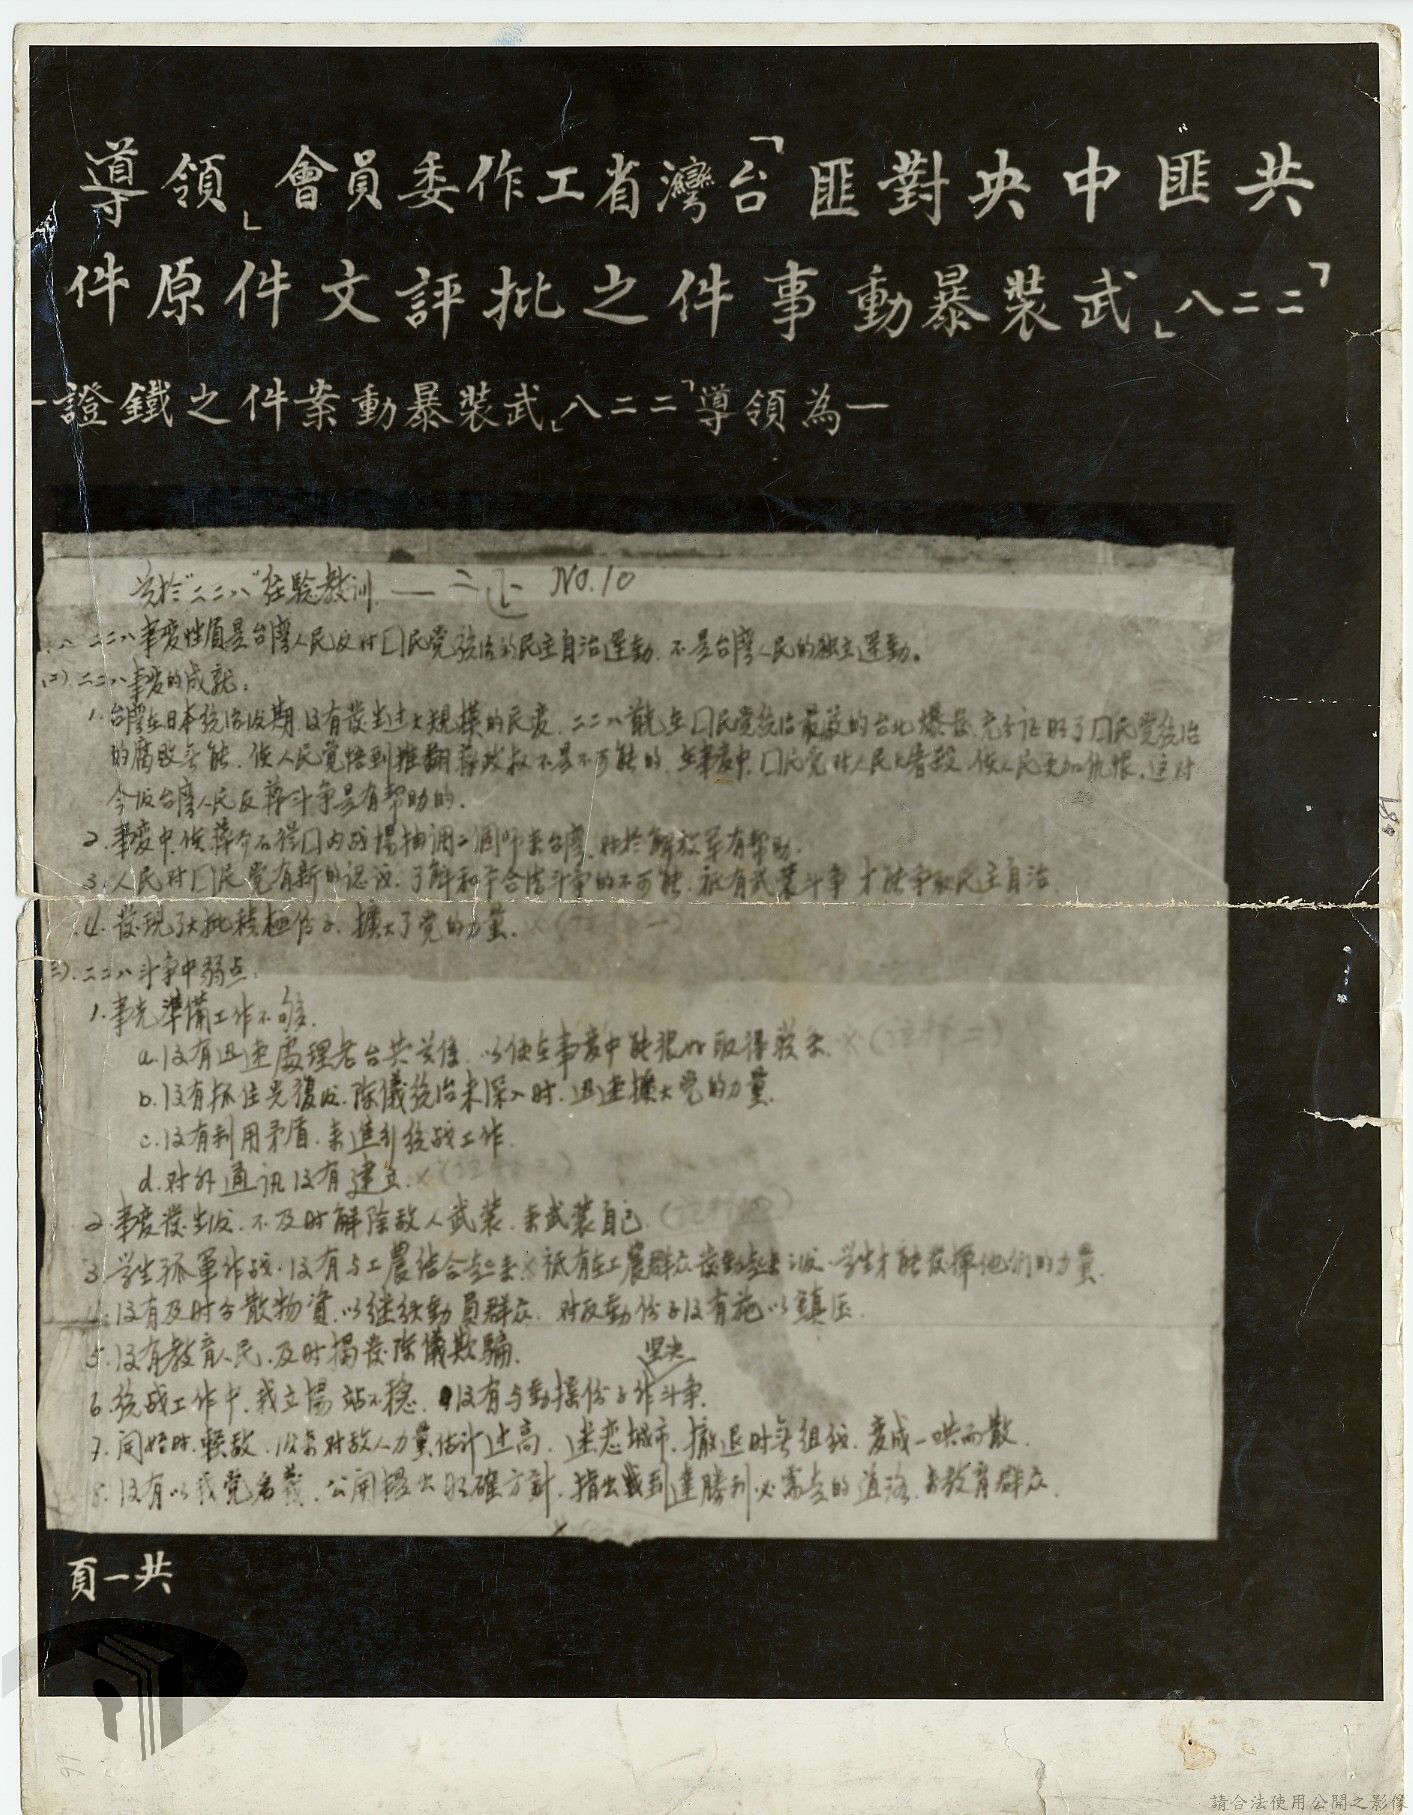 共匪中央對匪「台灣省工作委員會」領導
「二二八」武裝暴動事件之批評文件原件
—為領導「二二八」武裝暴動案件之鐵證—
关於"二二八"经驗教训. — NO.10
二二八事变性質是台湾人民反对囗民党統治的民主自治運動. 不是台湾人民的独立運動。
(二) 二二八事变的成就:
1. 台灣在日本统治后期. 没有發生过大规模的民变. 二二八首先在囗民党统治最嚴的台北爆發. 充分证明了囗民党统治
的腐败无能. 使人民覚悟到推翻蔣政权不是不可能的. 在事变中. 囗民党对人民大屠殺. 使人民更加仇恨. 这对
今后台湾人民反蔣斗争是有帮助的.
2. 事变中. 使蔣介石從囗内战場抽调二個师来台湾. 对於解放军有帮助.
3. 人民对囗民党有新的认识. 了解和平合法斗争的不可能. 祇有武装斗争才能争取民主自治.
4. 發现了大批積極份子. 擴大了党的力量.
三). 二二八斗争中弱点:
1. 事先準備工作不够.
a. 没有迅速處理老台共关係. 以便在事变中能很好取得联系.
b. 没有抓住光復后. 陈儀统治未深入时. 迅速擴大党的力量.
c. 没有利用矛盾. 来進行统战工作.
d. 对外通讯没有建立.
2. 事变發生后. 不及时解除敌人武装. 来武装自己.
3. 学生孤軍作战. 没有与工農结合起来. 祇有在工農群众發動起来以后. 学生才能發揮他们的力量.
4. 没有及时分散物資. 以继续動員群众. 对反動份子没有施以鎮压.
5. 没有教育人民. 及时揭發陈儀欺騙.
坚决
6. 统战工作中. 我立場站不稳. 没有与動摇份子作斗争.
7. 開始时. 輕敌. 后来对敌人力量估计过高. 迷恋城市. 撤退时无组织. 变成一哄而散.
8. 没有以我党名義. 公開提出明確方針. 指出我到達勝利必需走的道路. 去教育群众.
共一頁
請合法使用公開之影像